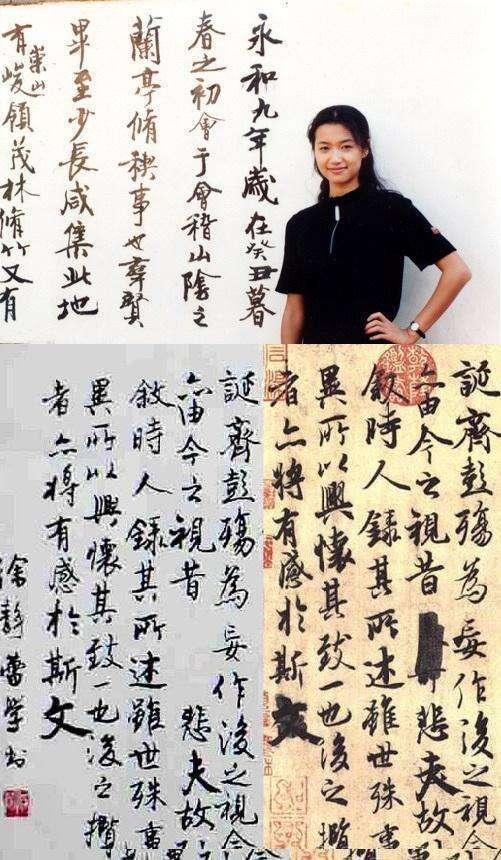 永和九年歲在癸丑暮
春之初會于會稽山陰之
蘭亭脩禊事也羣賢
畢至少長咸集此地
有崇山峻領茂林脩竹又有
誕齊彭殤為妄作後之視今
亦由今之視昔悲夫故
敘時人錄其所述雖世殊事
異所以興懷其致一也後之攬
者亦將有感於斯文
誕齊彭殤為妄作後之視今
亦由今之視昔悲夫故
敘時人錄其所述雖世殊事
異所以興懷其致一也後之攬
者亦將有感於斯文
徐靜蕾學書